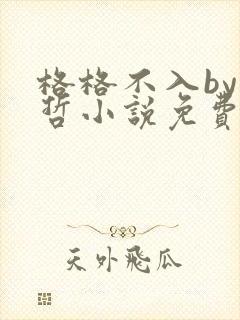 格格不入by
哲小説免費
天外飛瓜